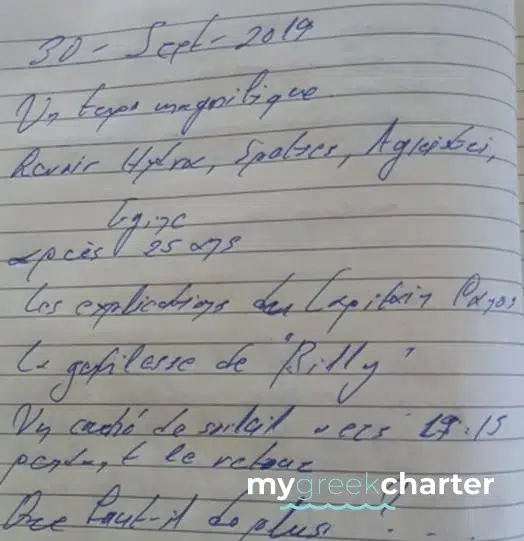 30 - Sept - 2019
Un temps magnifique
Revoir Hydra, Spatses, Agkistri,
Egine
après 25 ans
Les explications du Capitain Panos
La gentilesse de "Billy"
Un couché de soleil vers 19:15
pendant le retour
Que faut-il de plus ! . . .
mygreekcharter